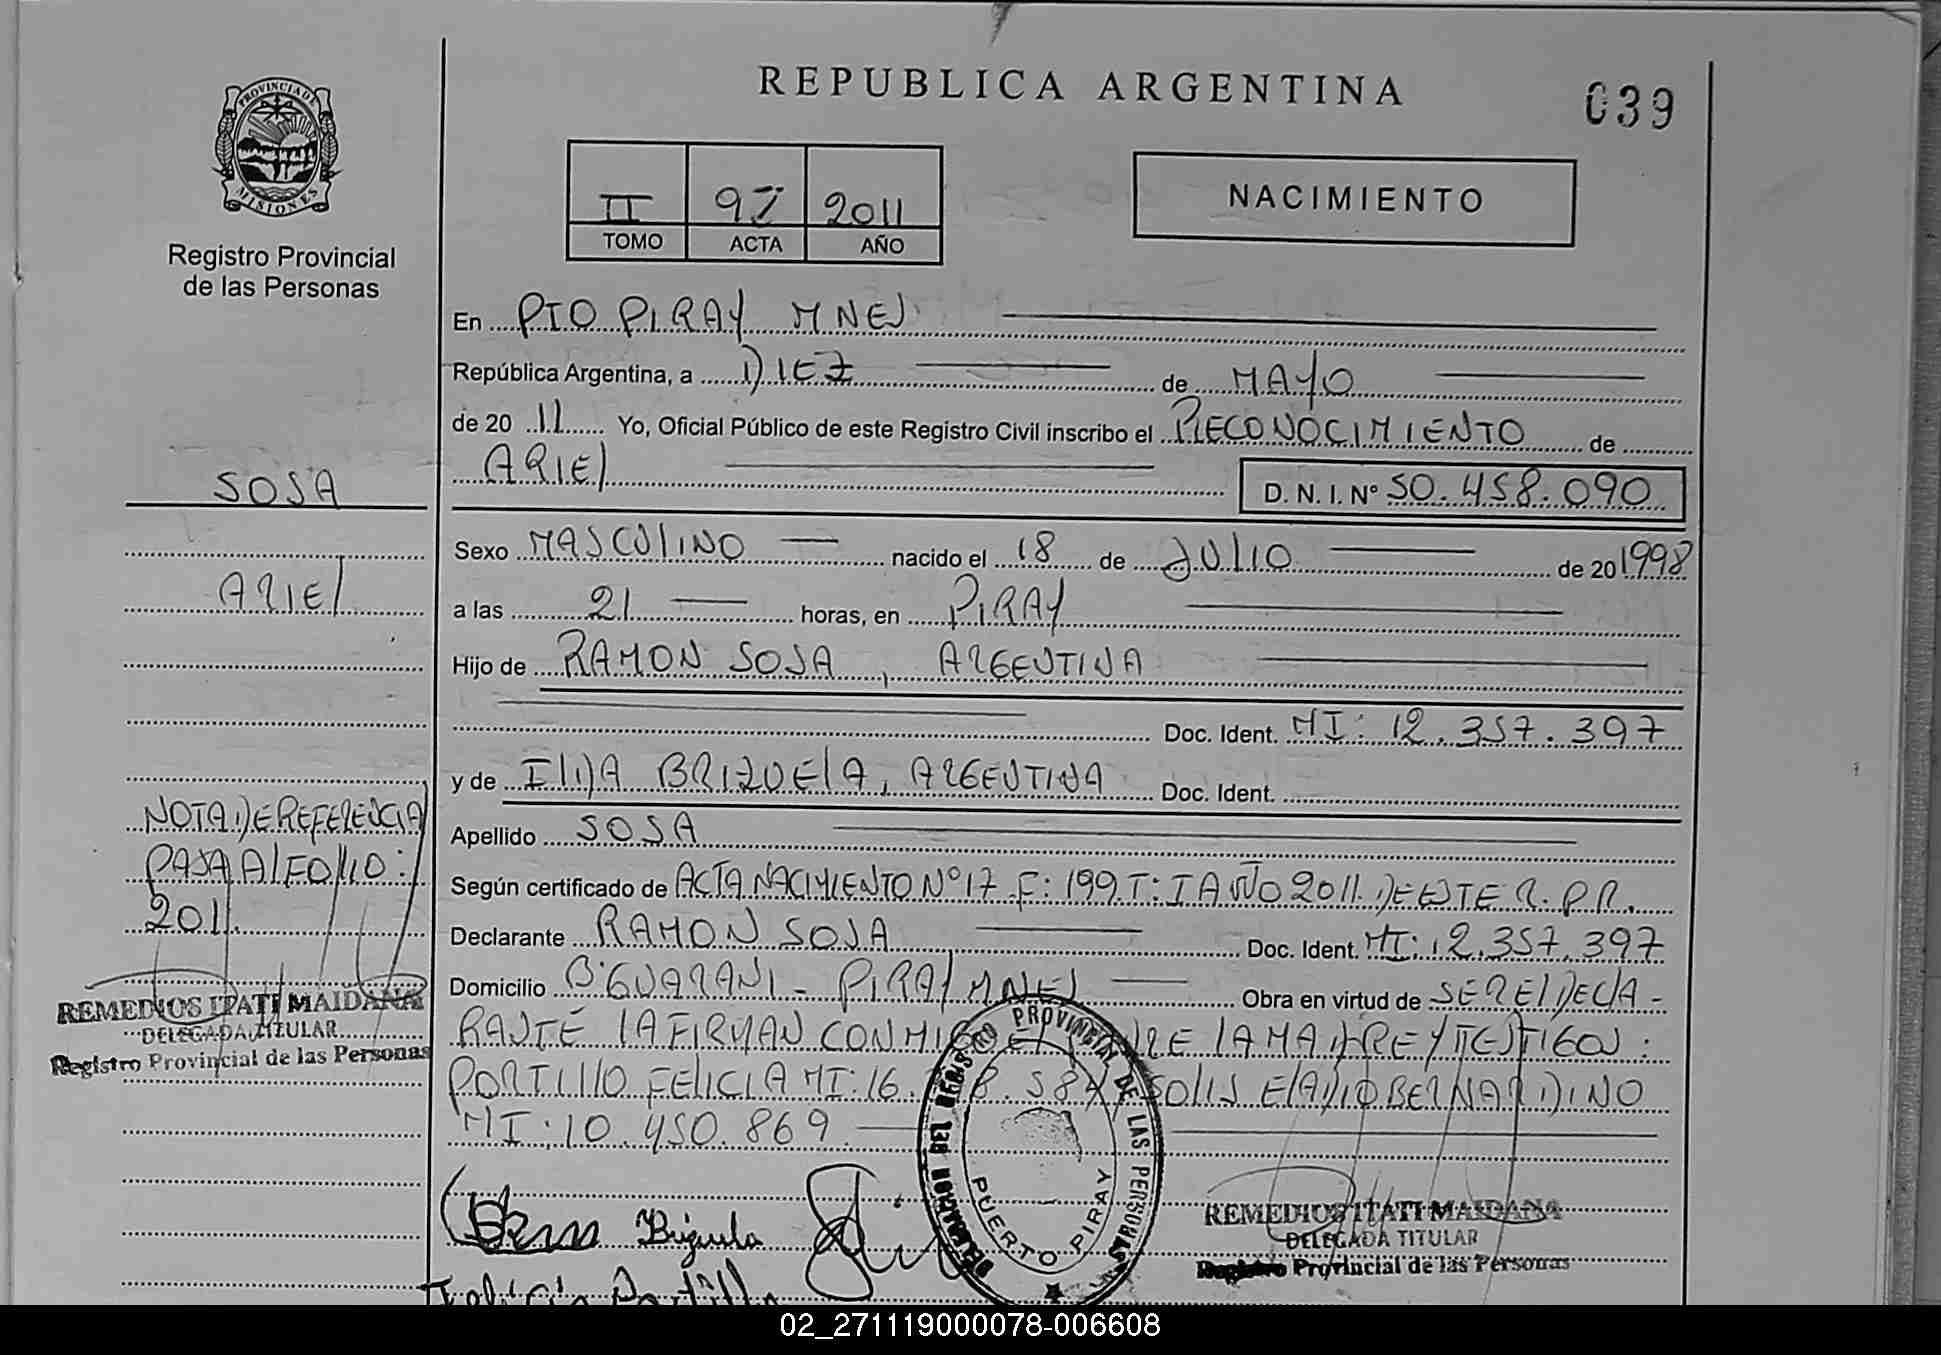 REPUBLICA ARGENTINA
039
PROVINCIA DE
MISIONES
Registro Provincial
de las Personas
II 97 2011
TOMO ACTA AÑO
NACIMIENTO
En PTO PIRAY MNES
República Argentina, a DIEZ de MAYO
de 20 11 Yo, Oficial Público de este Registro Civil inscribo el RECONOCIMIENTO de
ARIEL D. N. I. Nº 50.458.090
SOSA
ARIEL
Sexo MASCULINO nacido el 18 de JULIO de 20 1998
a las 21 horas, en PIRAY
Hijo de RAMON SOSA, ARGENTINA
Doc. Ident. MI: 12.357.397
y de ILDA BRIZUELA, ARGENTINA Doc. Ident.
Apellido SOSA
Según certificado de ACTA NACIMIENTO Nº 17 F: 199 T: I AÑO 2011 DE ESTE R. P. P.
Declarante RAMON SOSA Doc. Ident. MI: 12.357.397
Domicilio Bº GUARANI - PIRAY MNES Obra en virtud de SER EL DECLA-
RANTE LA FIRMAN CONMIGO EL PADRE LA MADRE Y TESTIGOS:
PORTILLO FELICIA MI: 16. 8.584 SOLIS ELADIO BERNARDINO
MI: 10.450.869
NOTA DE REFERENCIA
PASA AL FOLIO:
201
REMEDIOS ITATI MAIDANA
DELEGADA TITULAR
Registro Provincial de las Personas
Brizuela
Felicia Portillo
PROVINCIAL DE LAS PERSONAS
PUERTO PIRAY
REMEDIOS ITATI MAIDANA
DELEGADA TITULAR
Registro Provincial de las Personas
02_271119000078-006608